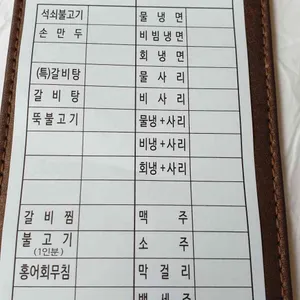 석쇠불고기 물 냉 면
손 만 두 비빔냉면
회 냉 면
(특)갈비탕 물 사 리
갈 비 탕 비 사 리
뚝불고기 물냉+사리
비냉+사리
회냉+사리
갈 비 찜 맥 주
불 고 기 소 주
(1인분)
홍어회무침 막 걸 리
백 세 주